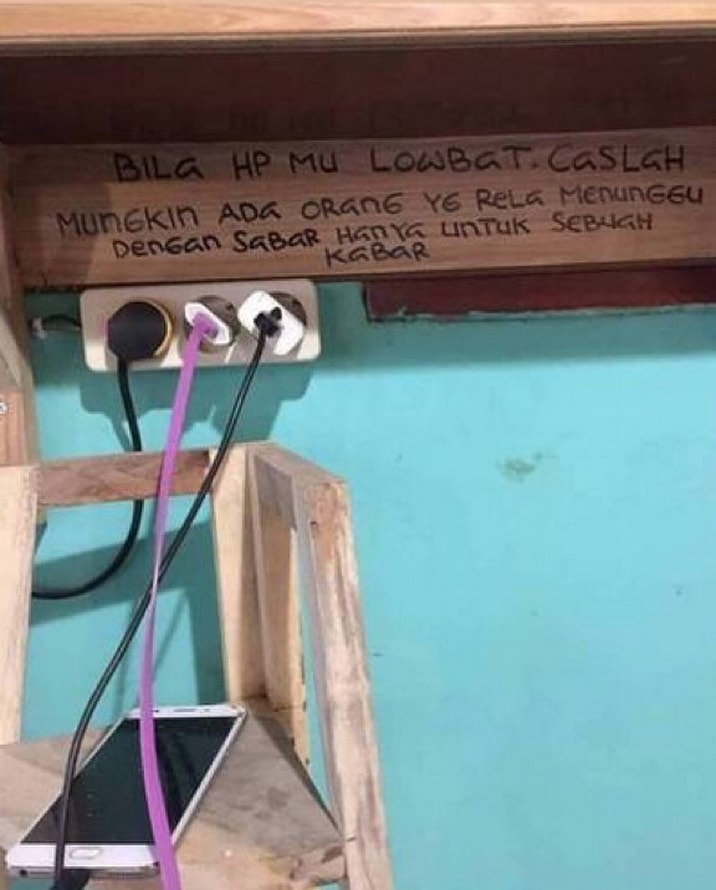 BILa HP MU LOWBaT. CaSLaH
MUNGKIN ADa ORaNG YG ReLa MeNUNGGU
DeNGaN SaBaR HaNYa UNTUK SEBUaH
KaBaR